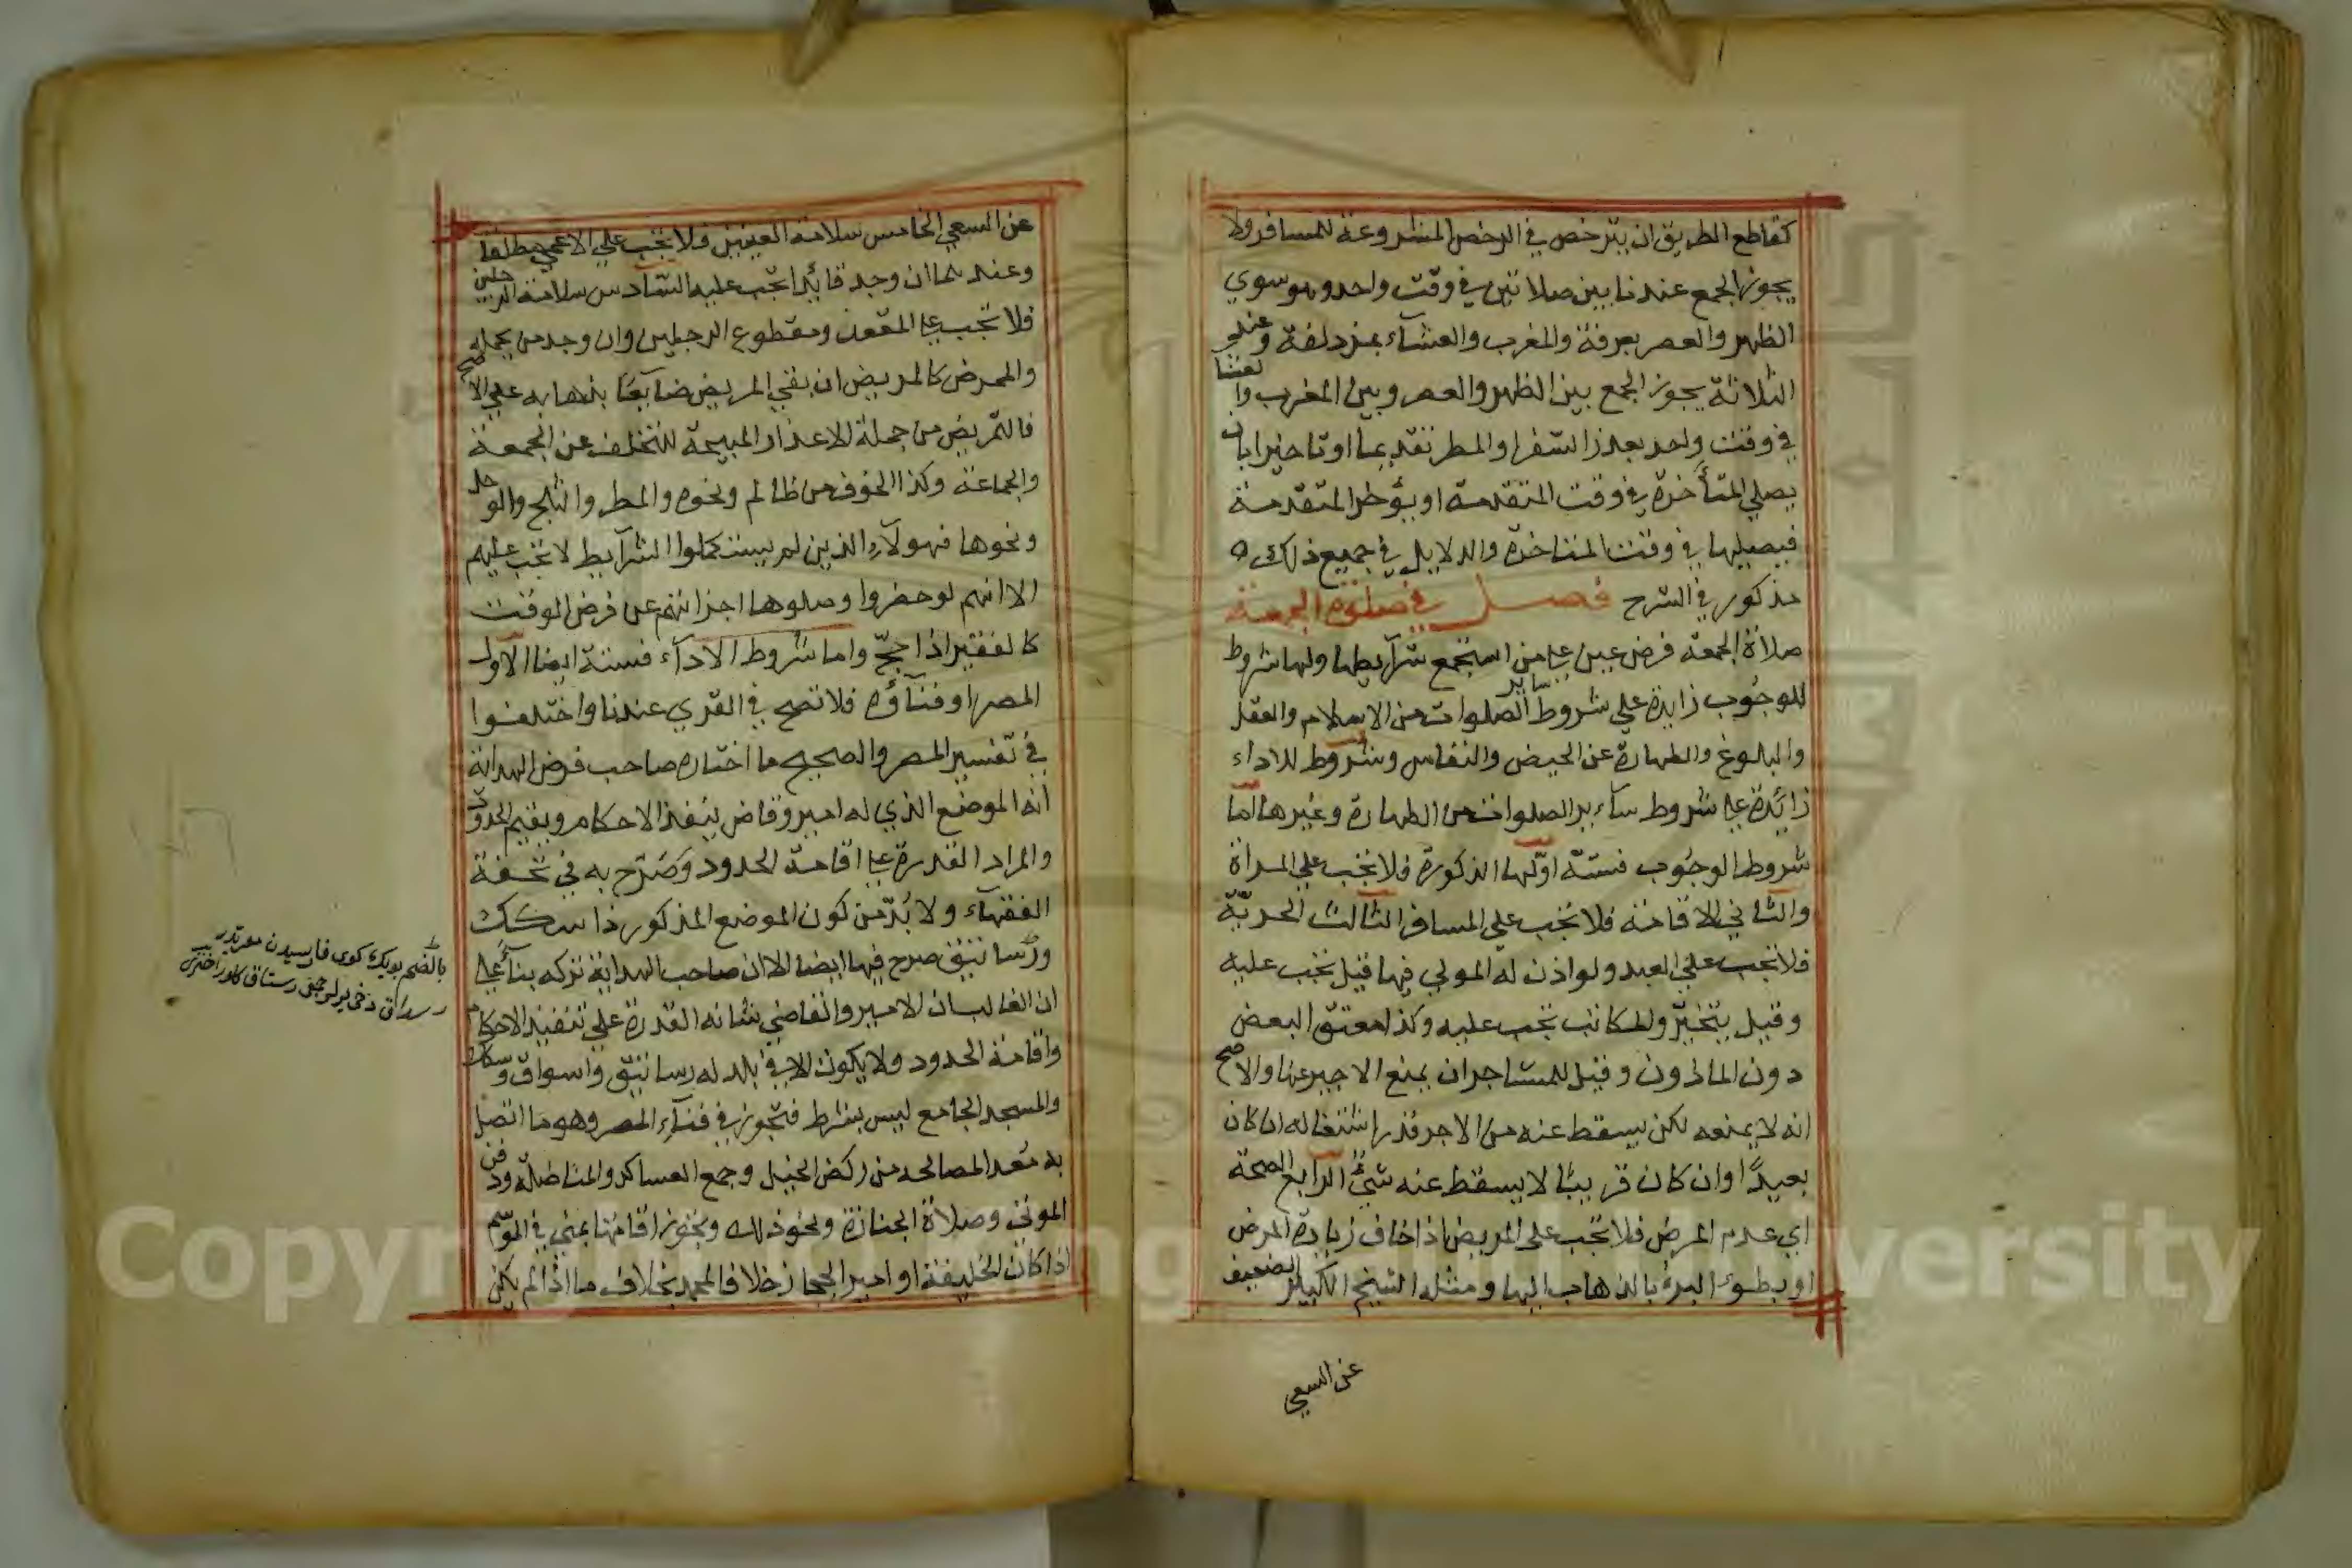 كقاطع الطريق ان يترخص في الرخص المشروعة للمسافر ولا
يجوز الجمع عندنا بين صلاتين في وقت واحد وهو سوي
الظهر والعصر بعرفة والمغرب والعشآء بمزدلفة وعند
الثلاثة يجوز الجمع بين الظهر والعصر وبين المغرب والعشا
في وقت واحد بعذر السفر او المطر تقديما او تاخيرا بان
يصلي المتأخرة في وقت المتقدمة او يؤخر المتقدمة
فيصيلها في وقت المتاخرة والدلايل في جميع ذلك
مذكور في الشرح فصل في صلوة الجمعة
صلاة الجمعة فرض عين علي من استجمع شرآيطها ولها شروط
للوجوب زايدة علي شروط ساير الصلوات من الاسلام والعقل
والبلوغ والطهارة عن الحيض والنفاس وشروط للاداء
زائدة علي شروط سآير الصلوات من الطهارة وغيرها اما
شروط الوجوب فستة اولها الذكورة فلا تجب علي المرأة
والثاني الاقامة فلا تجب علي المسافر الثالث الحرية
فلا تجب علي العبد ولو اذن له المولي فيها قيل تجب عليه
وقيل يتخير والمكاتب تجب عليه وكذا معتق البعض
دون الماذون وقيل للمستاجر ان يمنع الاجير عنها والاصح
انه لا يمنعه لكن يسقط عنه من الاجر قدر اشتغاله ان كان
بعيدًا وان كان قريبًا لا يسقط عنه شئ الرابع الصحة
اي عدم المرض فلا تجب علي المريض اذا خاف زيادة المرض
او بطوء البرء بالذهاب اليها ومثله الشيخ الكبير الضعيف
عن السعي
عن السعي الخامس سلامة العينين فلا تجب علي الاعمي مطلقا
وعندهما ان وجد قائدا تجب عليه السادس سلامة الرجلين
فلا تجب علي المقعد ومقطوع الرجلين وان وجد من يحمله
والممرض كالمريض ان بقي المريض ضآيعًا بذهابه علي الاصح
فالتمريض من جملة الاعذار المبيحة للتخلف عن الجمعة
والجماعة وكذا الخوف من ظالم ونحوه والمطر والثلج والوحل
ونحوها فهولآء الذين لم يستكملوا الشرآيط لا تجب عليهم
الا انهم لو حضروا وصلوها اجزاتهم عن فرض الوقت
كالفقير اذا حج واما شروط الادآء فستة ايضا الاول
المصر او فنآؤه فلا تصح في القري عندنا واختلفوا
في تفسير المصر والصحيح ما اختاره صاحب الهداية
انه الموضع الذي له امير وقاض ينفذ الاحكام ويقيم الحدود
والمراد القدرة علي اقامة الحدود وصرح به في تحفة
الفقهآء ولا بد من كون الموضع المذكور ذا سكك
ورساتيق صرح فيها ايضا الا ان صاحب الهداية تركه بنآء علي
ان الغالب ان الامير والقاضي شانه القدرة علي تنفيذ الاحكام
واقامة الحدود ولا يكون الا في بلد له رساتيق واسواق وسكك
والمسجد الجامع ليس بشرط فتجوز في فنآء المصر وهو ما اتصل
به معد لمصالحه من ركض الخيل وجمع العساكر والمناضلة ودفن
الموتي وصلاة الجنازة ونحو ذلك وتجوز اقامتها بمني في الموسم
اذا كان الخليفة او امير الحجاز خلافا لمحمد بخلاف ما اذا لم يكن